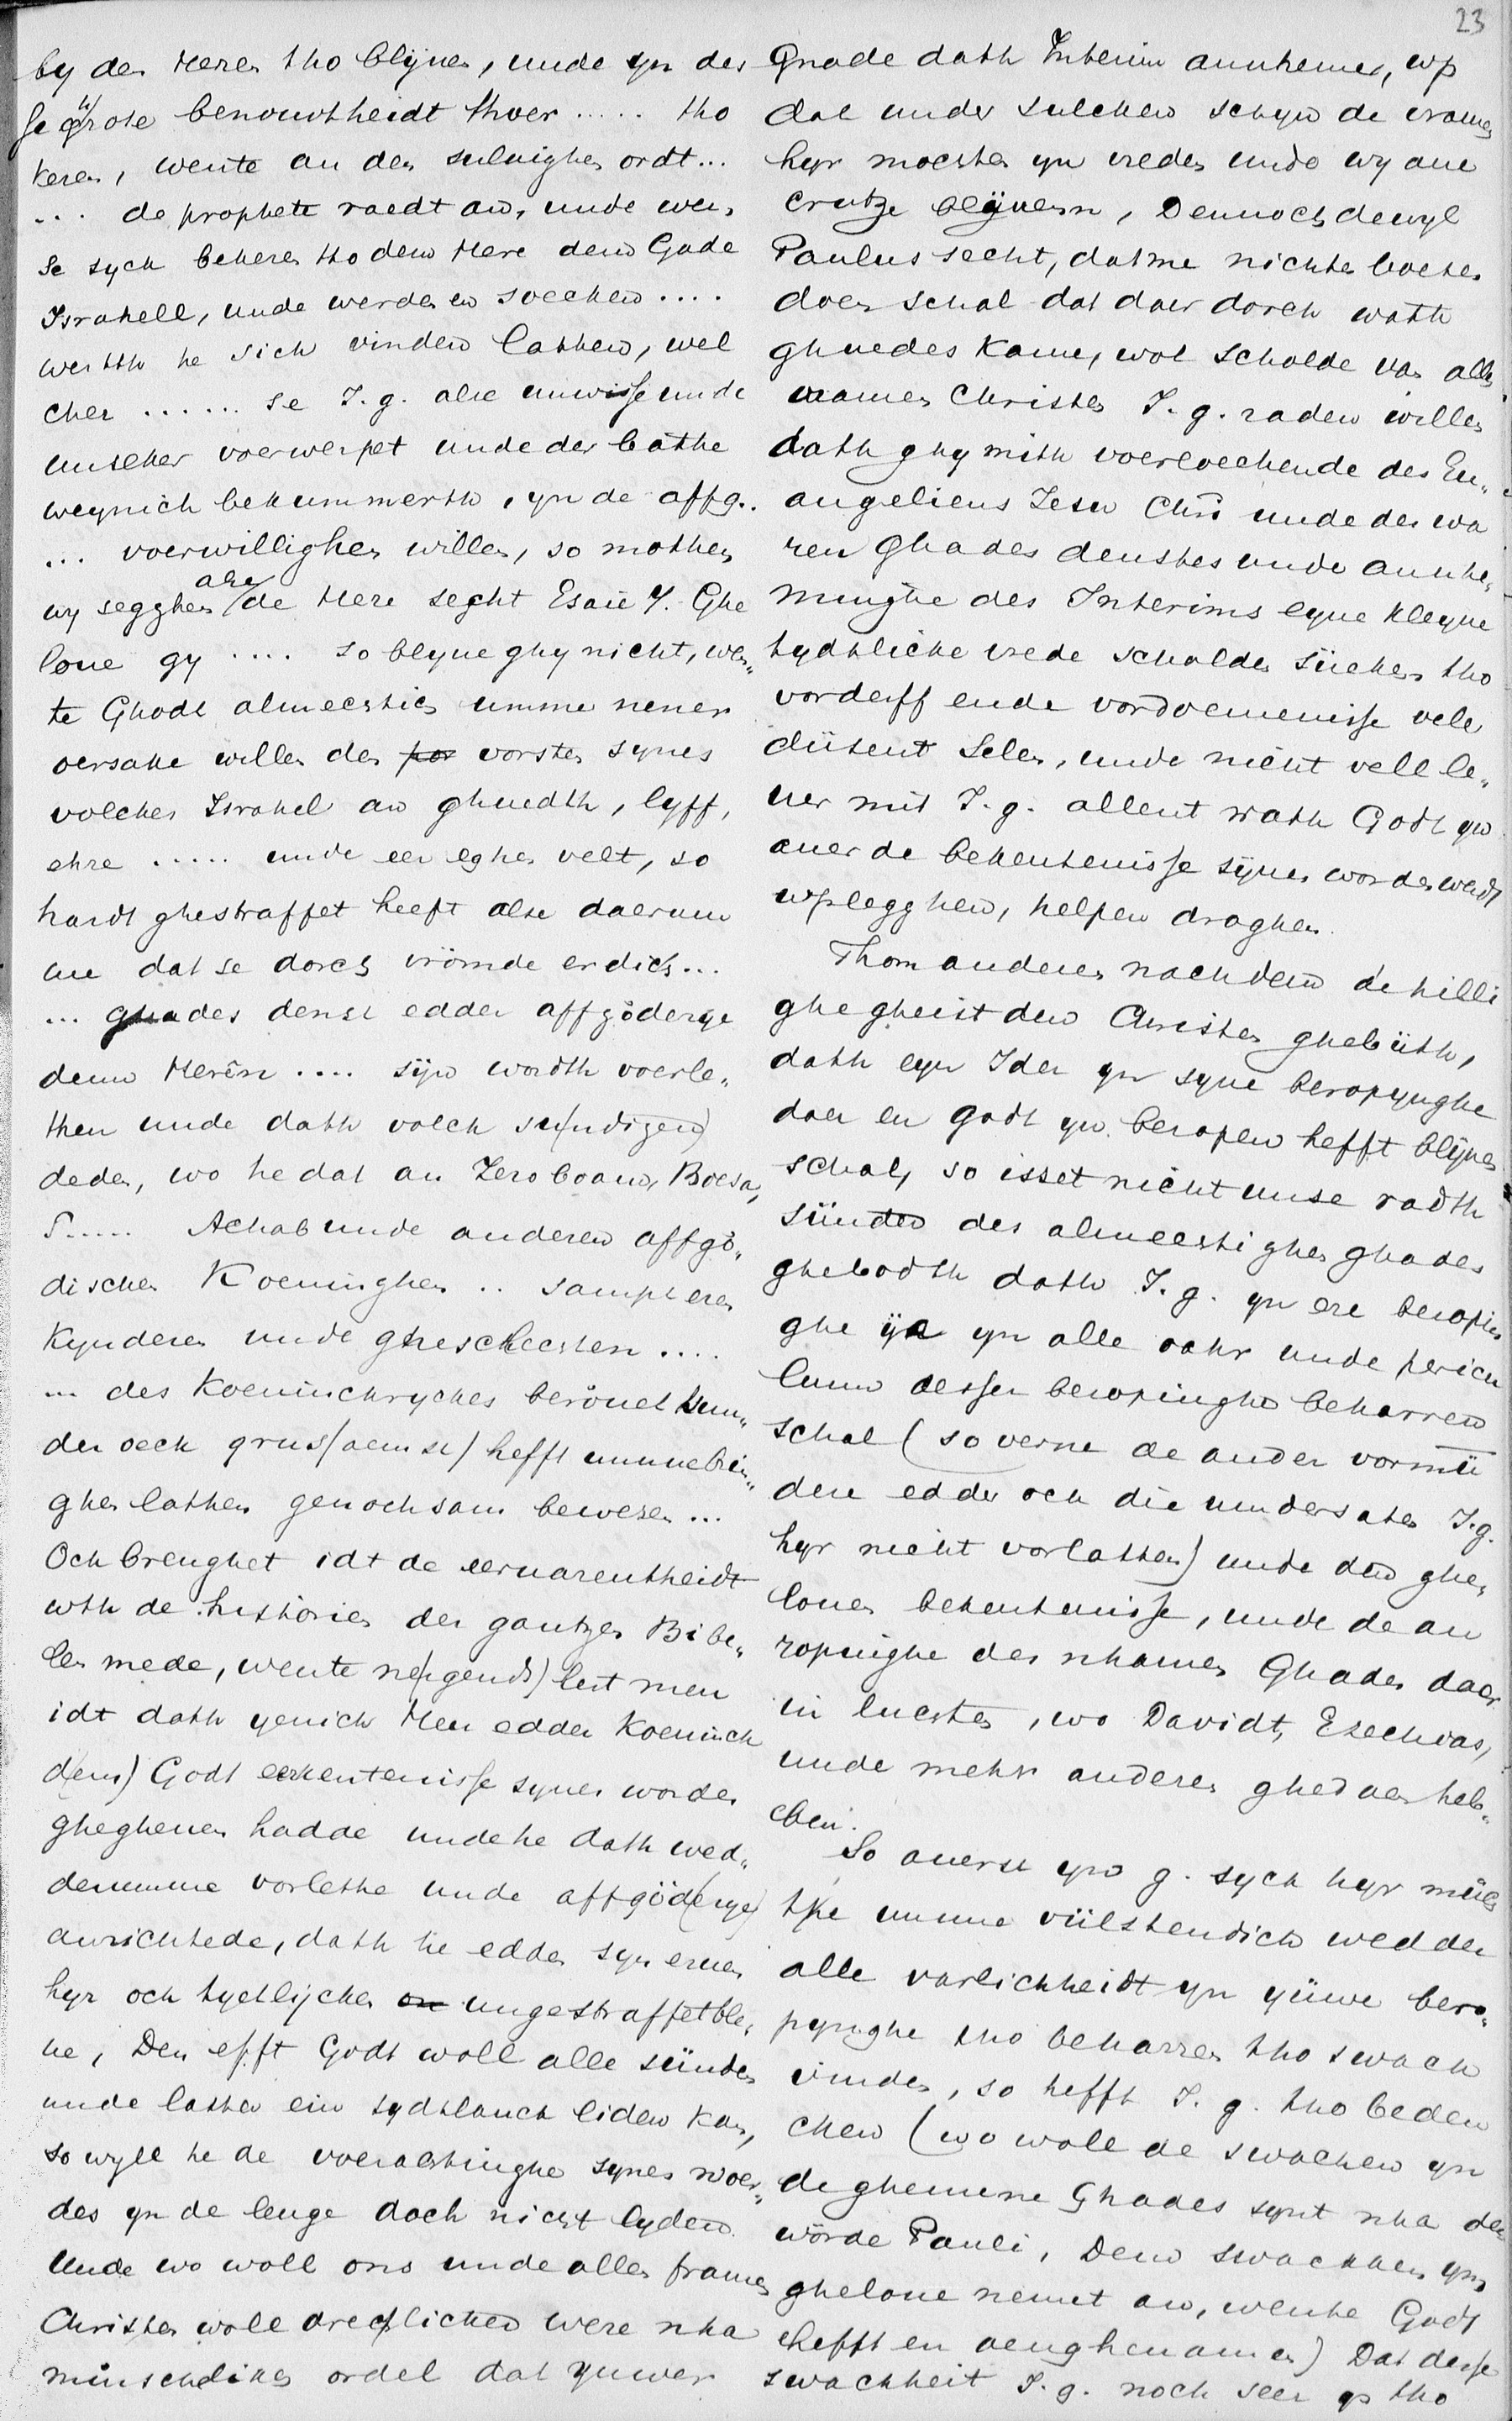 23
by den Heren tho blyuen, unde yn des
se grote benouwtheidt thoer ..... tho
keren, wente an den seluighen ordt...
... de prophete raedt an, unde wen,
se sych bekeren tho dem Here dem Gade
Israhell, unde werden en soecken ....
werth he sich vinden lathen, wel
cher ...... se J. g. alse unwisse unde
unseker voerwerpet unde der bathe
weynich bekummerth, yn de affg..
... voerwillighen willen, so mothen
wy segghen alse de Here secht Esaie 7. Ghe
loue gy .... so blyue ghy nicht, wen„
te Ghodt almechtich umme nener
oersake willen den vorsten synes
volckes Israhel an ghuedth, lyff,
ehre ..... unde een eghen velt, so
hardt ghestraffet heeft alse daerum
me dat se dorch frömde erdich...
... ghades denst edder affgöderye
demm Herên .... sijn wordth voerle„
then unde dath volck su(ndigen)
deden, wo he dat an Zeroboam, Boesa,
S..... Achab unde anderen affgö„
dischen Koeninghen .. sampt eren
Kynderen unde ghesclechten ....
... des Koeninckryches beröuet sun„
der oeck grus(aemst) hefft ummebrin„
ghen lathen genochsam bewesen ...
Och brenghet idt de eeruarentheidt
wth de historien der gantzen Bibe„
len mede, wente ne(rgends) lest men
idt dath yenich Heer edder Koeninck
d(em) Godt erkentenisse synes wordes
gheghenen hadde unde he dath wed„
derumme vorlethe unde affgöd(erye)
anrichtede, dath he edder syn eruen
hyr och tydtlijcken ungestraffet ble„
ue, Den efft Godt woll alle sünden
unde lasten ein tydtlanck liden kan,
so wyll he de voerachtinghe synes woer„
des yn de lenge doch nicht lyden.
Unde wo woll ons unde allen framen
Christen wole drechlicken were nha
minschliken ordel dat yuwer
Gnade dath Interim annhemen, wp
dat under sulcken schyn de vramen
hyr mochten yn vreden unde wy ane
crutze blijuenn, Dennoch dewyl
Paulus secht, datme nichtes boeses
doen schal dat daer dorch wath
ghuedes kame, wol scholde van allen
vramen Christen J. g. raden willen
dath ghy mith voerloechende des Eu„
angeliens Jesu Chri unde des wa
ren Ghades denstes unde annhe„
minghe des Interims eyne kleyne
tydtliche vrede scholden süeken tho
vorderff ende vordoemenisse vele
düsent Selen, unde nicht vell le„
uer mit J. g. allent wath Godt yw
auer de bekentenisse synes wordes werdt
wplegghen, helpen draghen.
Thom anderen nachdem de hilli
ghe gheist den Christen ghebüth,
dath eyn Ider yn syne beropynghe
daer en godt yn beropen hefft blyuen
schal, so isset nicht unse radth
sünder des almechtighen ghades
ghebodth dath J. g. yn ere beropin
ghe ya yn alle vahr unde pericu
lumm desser beropinghe beharren
schal (so verne de ander vormü
dere edder ock die undersaten J. g.
hyr nicht vorlathen) unde den ghe„
louen bekentenisse, unde de an
ropinghe des nhamen Ghades daer
in luchten, wo Davidt, Ezechias,
unde mehr anderen ghedaen heb„
ben.
So auerst yw g. sych hyr müch
the umme vüllstendich wedder
alle varlichheidt yn yüwe bero„
pynghe tho beharren tho swack
vinden, so hefft J. g. tho beden
cken (wo woll de swacken yn
de ghemene Ghades synt nha den
wörde Pauli, Dem swacken ym
ghelouen nemet an, wente Godt
hefft en aenghenamen) Dat desse
swachheit J. g. noch seer ys tho